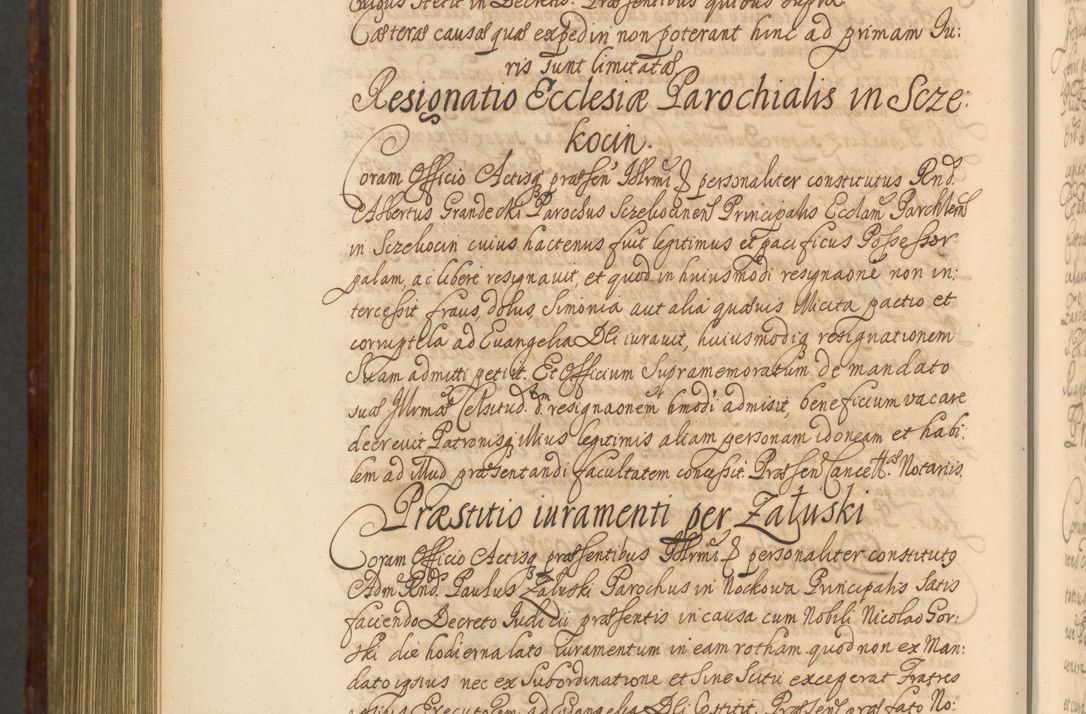 Cæteræ causæ quæ expediri non poterant hinc ad primam Iu:
ris sunt limitatæ
Resignatio Ecclesiæ Parochialis in Scze:
kocin.
Coram Officio Actisq præsen Illrmi D personaliter constitutus Rnd.
Albertus Grandecki Parochus Sczekocinens Principalis Ecclam Parchlem
in Sczekocin cuius hactenus fuit legitimus et pacificus Possessor
palam, ac libere resignavit, et quod in huiusmodi resignaone non in:
tercessit fraus, dolus Simonia aut alia quævis illicita pactio et
corruptela ad Evangelia Dei iuravit, huiusmodiq resignationem
Suam admitti petiit. Et Officium Supramemoratum de mandato
suæ Illrmæ Celsitud. d. resignaonem hmodi admisit, beneficium vacare
decrevit Patronisq illius legitimis aliam personam idoneam et habi:
lem ad illud præsentandi facultatem concessit. Præsen Cancell. Notariis
Præstitio iuramenti per Załuski
Coram Officio Actisq præsentibus Illrmi D personaliter constitutq
Adm Rnds Paulus Załuski Parochus in Nockowa Principalis Satis
faciendo Decreto Iudicii præsentis in causa cum Nobili Nicolao Gor:
ski die hodierna lato iuramentum in eam rotham quod non ex Man:
dato ipsius nec ex Subordinatione et Sine Scitu exceperat Fratres
Executorem ad Evangelia Dei præstitit. Præsen præfato No: